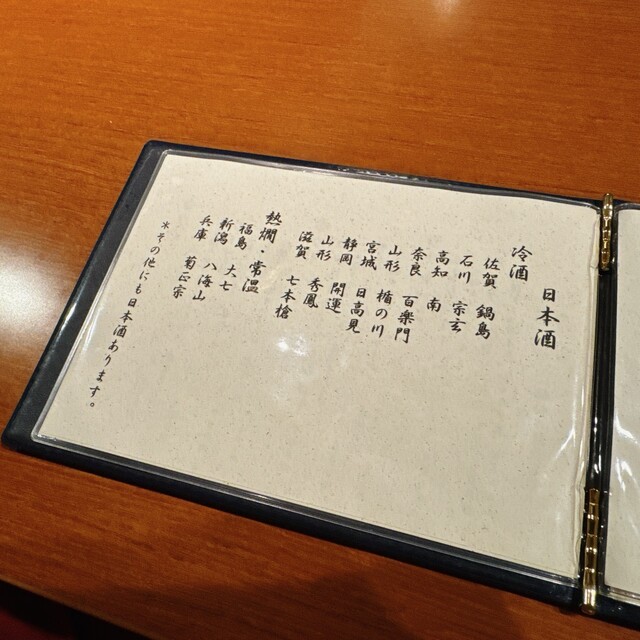 日本酒
冷酒
佐賀 鍋島
石川 宗玄
高知 南
奈良 百楽門
山形 楯の川
宮城 日高見
静岡 開運
山形 秀鳳
滋賀 七本槍
熱燗・常温
福島 大七
新潟 八海山
兵庫 菊正宗
*その他にも日本酒あります。